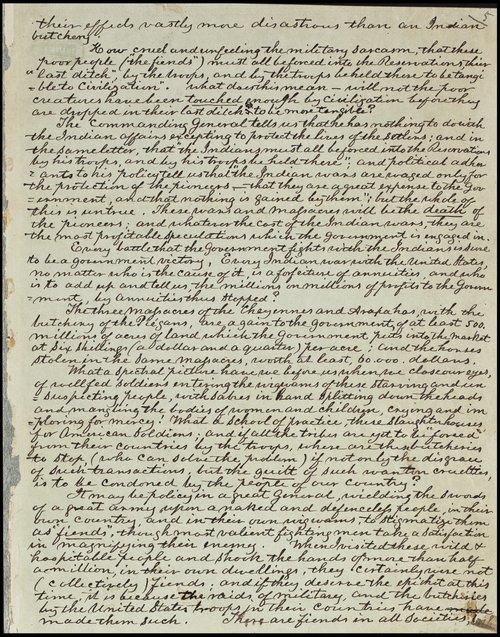 their effects vastly more disastrous than an Indian
butchery."
How cruel and unfeeling the military sarcasm, that these
poor people (the fiends") must all be forced into the Reservations, their
"last ditch", by the troops, and by the troops be held there to be tangi
=ble to Civilization". What does this mean — will not the poor
creatures have been touched enough by Civilization before they
are dropped in their last ditch? to be more tangible?
The Commanding General tells us that he has nothing to do with
the Indian affairs, excepting to protect the lives of the Settlers; and in
the same letter, that "the Indians must all be forced into the Reservations
by his troops, and by his troops be held there"; and political adher
=ants to his policy tell us that the Indian wars are waged only for
the protection of the pioneers — that they are a great expense to the Gov
=ernment, and that nothing is gained by them"; but the whole of
this is untrue. These wars and Massacres will be the death of
the pioneers; and whatever the cost of the Indian wars, they are
the most profitable speculations which the Government is engaged in.
Every battle that the Government fights with the Indians, is sure
to be a government victory, Every Indian war with the United States,
no matter who is the cause of it, is a forfeiture of annuities, and who
is to add up and tell us, the millions on millions of profits to the Govern
=ment, by annuities thus stopped?
The three Massacres of the Cheyennes and Arapahos, with the
butchery of the Piegans, are a gain to the Government, of at least 500.
millions of acres of land which the Government puts into the market
at Six Shillings, (a dollar and a quarter) per acre! (and the horses
stolen in the Same Massacres, worth at least, 60.000. dollars.
What a Spectral picture have we before us when we close our eyes,
of well fed Soldiers entering the wigwams of these starving and un
=suspecting people, with Sabres in hand splitting down the heads
and mangling the bodies of women and children, crying and im
=ploring for mercy! What a School of practice, these Slaughterhouses
for American Soldiers; and if all the tribes are yet to be "forced"
from their countries by the troops, where are these butcheries
to Stop, (who can solve the problem) if not only the disgrace
of such transactions, but the guilt of such wanton cruelties,
is to be condoned by the people of our country?
It may be policy in a great General, wielding the Swords
of a great army upon a naked and defenceless people, in their
own country, and in their own wigwams, to stigmatize them
as "fiends", though most valient fighting men take a Satisfaction
in magnifying their enemy. When I visited these wild &
hospitable people and shook the hands of more than half
a million, in their own dwellings, they certainly were not
(collectively) fiends; and if they deserve the epithet at this
time, it is because the raids of military, and the butcheries
by the United States troops in their countries have
made them such. There are fiends in all Societies,